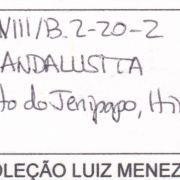 VIII/B.2-20-2
ANDALUSITA
to do Jenipapo, Iti
OLEÇÃO LUIZ MENEZ